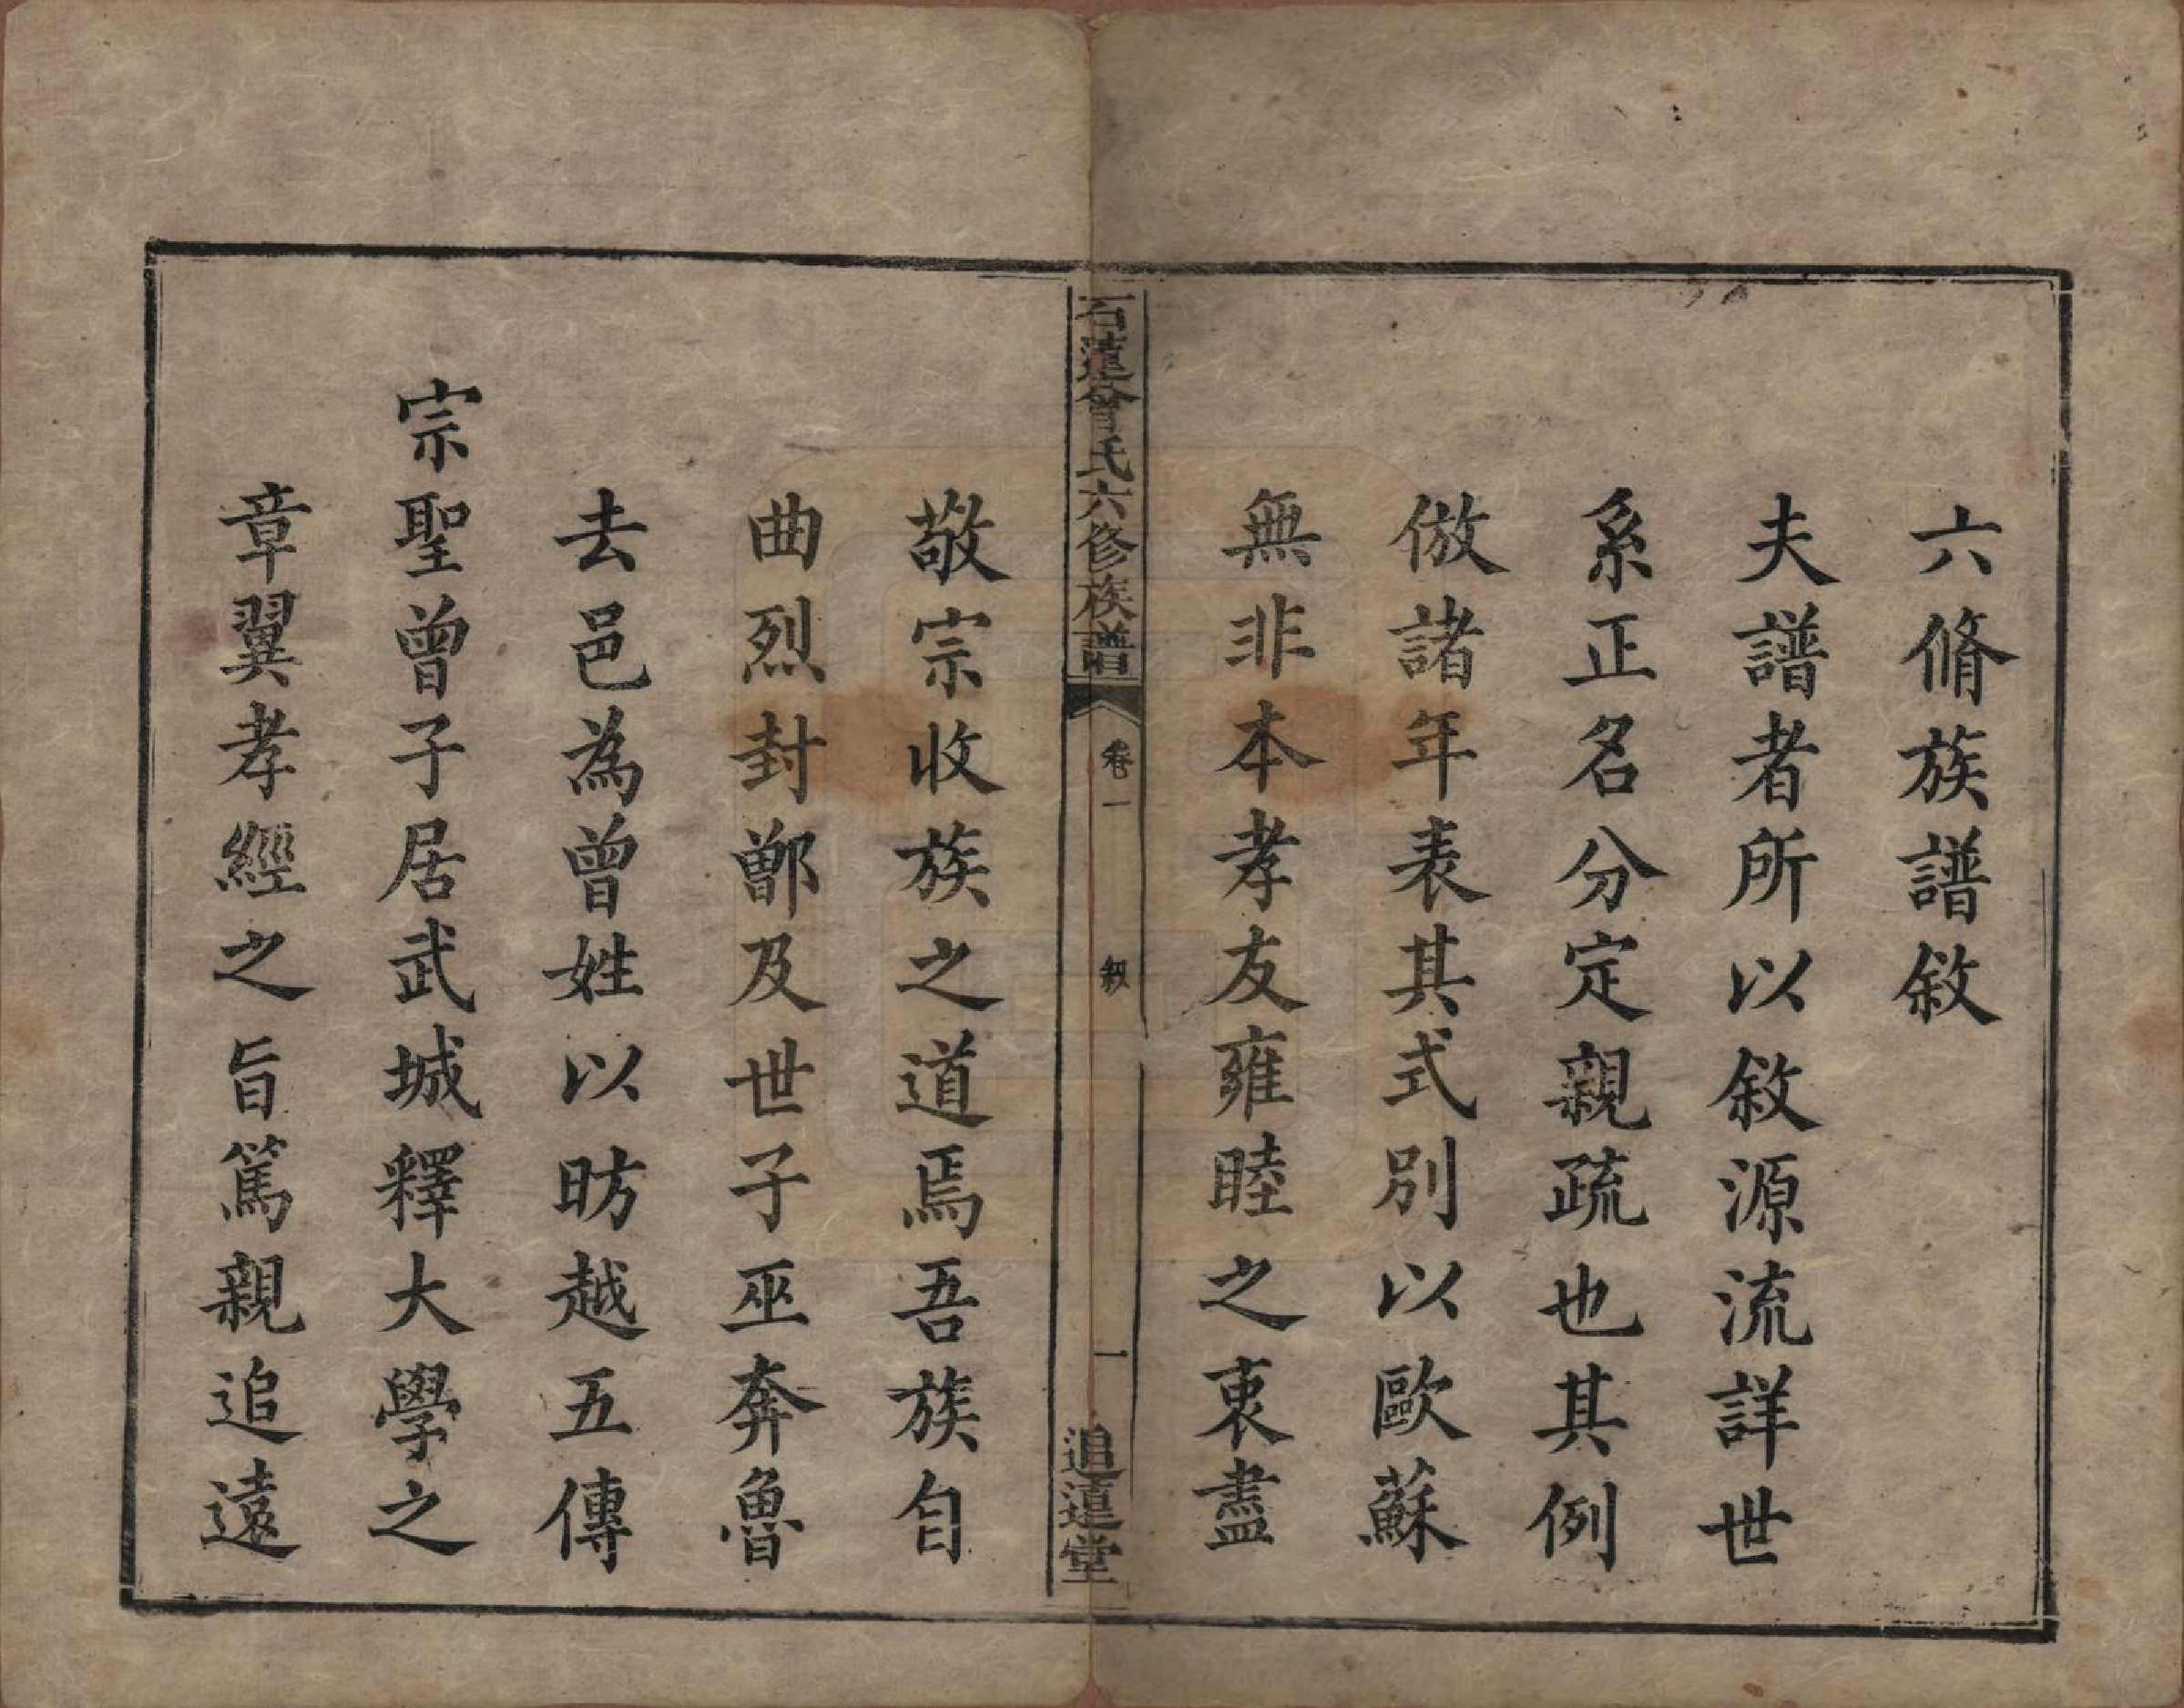 六脩族譜敘
夫譜者所以敘源流詳世
系正名分定親疏也其例
倣諸年表其式別以歐蘇
無非本孝友雍睦之衷盡
石蓮曾氏六修族譜 卷一 叙 一 追遠堂
敬宗收族之道焉吾族自
曲烈封鄫及世子巫奔魯
去邑為曾姓以昉越五傳
宗聖曾子居武城釋大學之
章翼孝經之旨篤親追遠